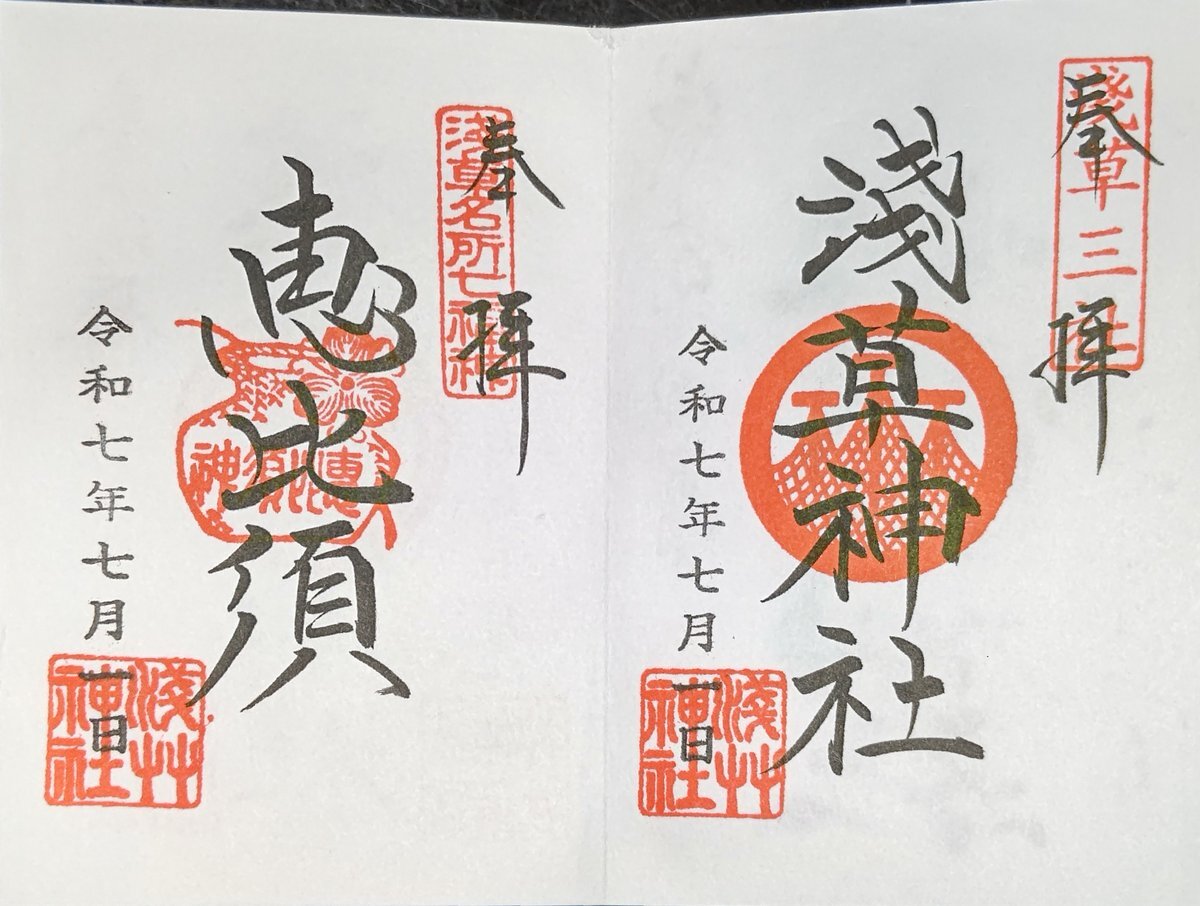 奉拝
淺草三社
淺草神社
令和七年七月一日
淺草神社
奉拝
浅草名所七福神
恵比須
恵比須神
令和七年七月一日
淺草神社